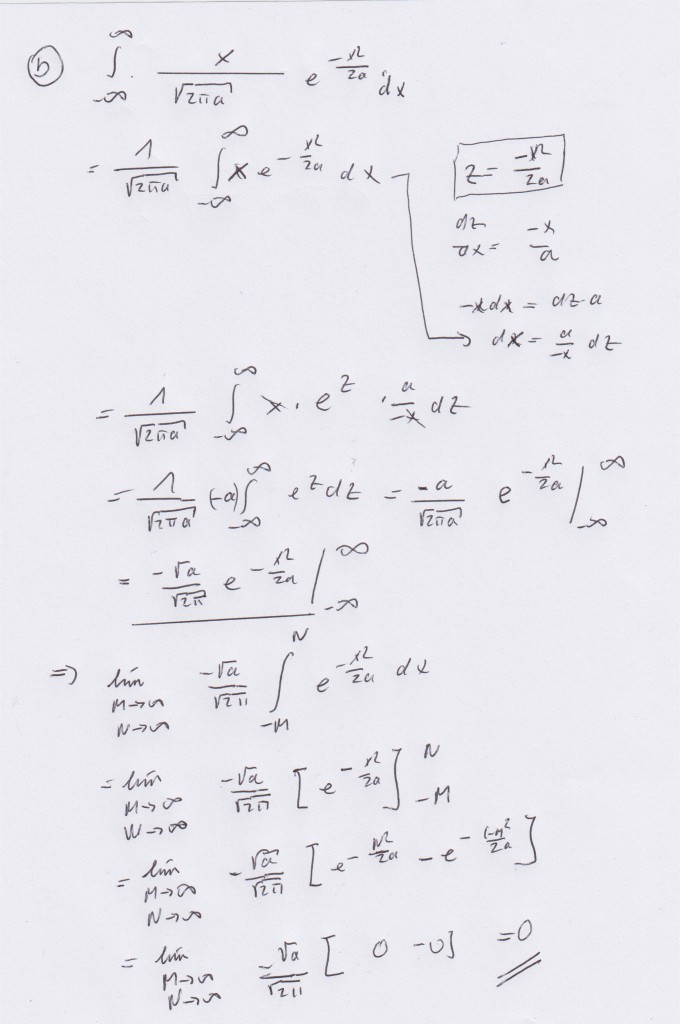 b) ∫_{-∞}^{∞} x/√(2πa) e^{-x²/2a} dx
= 1/√(2πa) ∫_{-∞}^{∞} x e^{-x²/2a} dx
z = -x²/2a
dz/dx = -x/a
-x dx = dz a
dx = a/-x dz
= 1/√(2πa) ∫_{-∞}^{∞} x · e^z · a/-x dz
= 1/√(2πa) (-a) ∫_{-∞}^{∞} e^z dz = -a/√(2πa) e^{-x²/2a} |_{-∞}^{∞}
= -√a/√(2π) e^{-x²/2a} |_{-∞}^{∞}
=> lim_{M→∞ N→∞} -√a/√(2π) ∫_{-M}^{N} e^{-x²/2a} dx
= lim_{M→∞ N→∞} -√a/√(2π) [e^{-x²/2a}]_{-M}^{N}
= lim_{M→∞ N→∞} -√a/√(2π) [e^{-N²/2a} - e^{-(-M²/2a}]
= lim_{M→∞ N→∞} -√a/√(2π) [0 - 0] = 0